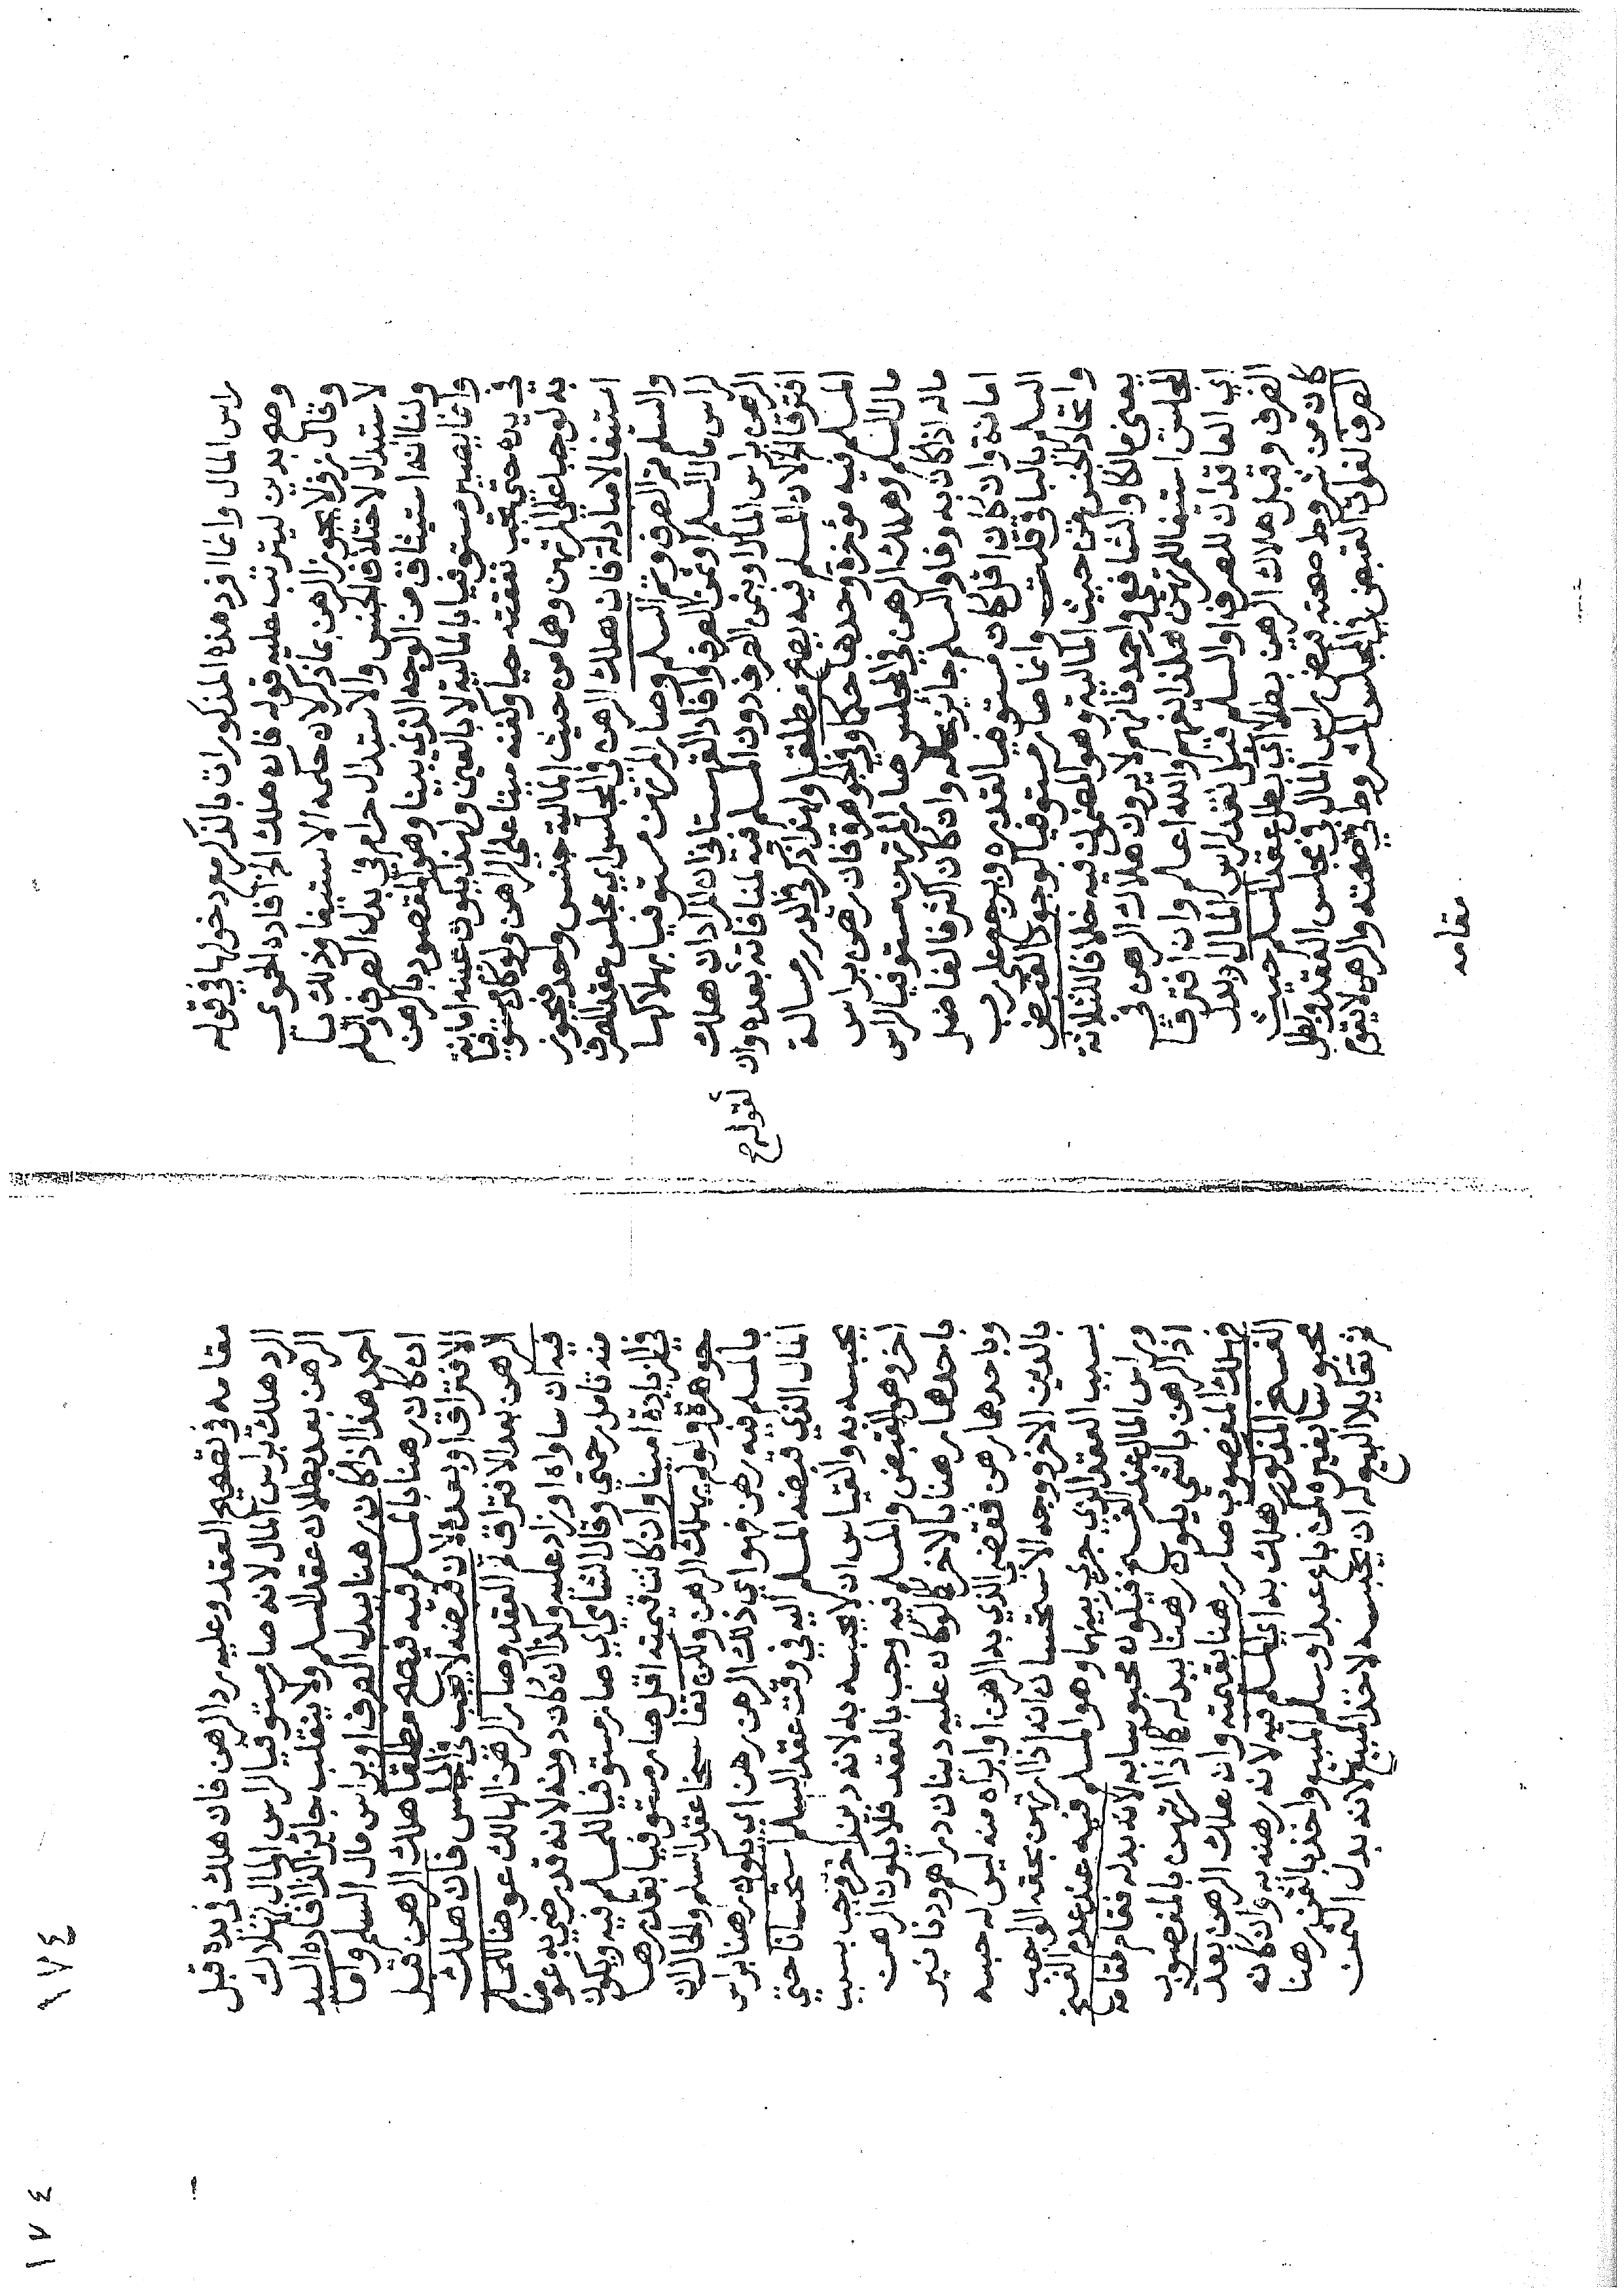 راس المال وانما افرد هذه المذكورات بالذكر مع دخولها في قوله
وصح بدين ليترتب عليه قوله فان هلك الخ افاده الحموي
وقال زفر لا يجوز الرهن بما ذكر لان حكمه الاستيفا وذلك با
لاستبدال لاختلاف الجنس والاستبدال حرام في بدل الصرف والسلم
ولنا انه استيثاق من الوجه الذي بينا وهو المقصود بالرهن
وانما يصير مستوفيا بالمالية لا بالعين ولهذا يكون عينه امانة
في يده حتى تجب نفقته حيا وكفنه ميتا على الراهن ولو كان مستوفيا
به لوجبا على المرتهن وهما من حيث المالية جنس واحد فيجوز
استيفا لا مبادلة فان هلك الرهن في المجلس اي مجلس عقد الصرف
والسلم تم الصرف وتم السلم وصار المرتهن مستوفيا بهلاكها
راس مال السلم او ثمن الصرف وافاد القهستاني ان المراد ان هلك
الرهن براس المال او بثمن الصرف دون المسلم فيه لمنافاته بعده وان
لقوله ع
افترقا الخ لان المسلم فيه يصح مطلقا ولهذا ذكر في الدرر مسالة
المسلم فيه مؤخرة وحدها حكما وفي الجوهرة فان رهن براس
مال السلم وهلك الرهن في المجلس صار المرتهن مستوفيا لراس
ماله اذا كان به وفا والسلم جائز بحاله وان كان اكثر فالفاضل
امانة وان كان اقل كان مستوفيا بقدره ويرجع على رب
السلم بالباقي قلت وانما صار مستوفيا لوجود القبض
واتحاد الجنس من حيث المالية وهو المضمون فيه خلافا للثلاثة
يعني مالكا والشافعي واحمد فانهم لا يرون هلاك الرهن في
المجلس استيفا للمرتهن هكذا يفهم والله اعلم وان افترقا
اي العاقدان للصرف او السلم قبل نقد راس المال او بدل
الصرف وقبل هلاك الرهن بطلا اي بطل عقد السلم حيث
كان من شروط صحته قبض راس المال في مجلس العقد وبطل
الصرف لفوات القبض في المجلس المشروط في صحته والرهن لا يقوم
مقامه
١٧٤
مقامه في تصحيح العقد وعليه رد الرهن فان هلك في يده قبل
الرد هلك براس المال لانه صار مستوفيا لراس المال بهلاك
الرهن بعد بطلان عقد السلم ولا ينقلب جائزا كذا افاده السيد
احمد هذا اذا كان رهنا ببدل الصرف او براس مال السلم واما
ان كان رهنا بالمسلم فيه فيصح مطلقا هلك الرهن قبل
الافتراق او بعده لان قبضه لا يجب في المجلس فان هلك
الرهن بعد الافتراق تم العقد وصار الرهن الهالك عوضا للمسلم
فيه ان ساواه او زاد عليه وكذا ان كان دونه لانه قد رضي به عوضا
منه تامل رحمتي وقال الشامي اي صار مستوفيا للمسلم فيه ويكون
في الزيادة امينا وان كانت قيمته اقل صار مستوفيا بقدرها
جوهرة ولو لم يهلك الرهن ولكن تفاسخا عقد السلم والحال ان
بالمسلم فيه رهن فهو اي ذلك الرهن رهن اي يكون رهنا براس
المال الذي قبضه المسلم اليه في وقت عقد السلم استحسانا حتى
يحبسه به والقياس ان لا يحبسه به لانه دين اخر وجب بسبب
اخر وهو القبض والمسلم فيه وجب بالعقد فلا يكون الرهن
باحدهما رهنا بالاخر كما لو كان عليه دينان دراهم ودنانير
وباحدهما رهن فقضى الذي به الرهن او ابراه منه ليس له حبسه
بالدين الاخر ووجه الاستحسان انه اذا ارتهن بحقه الواجب
بسبب العقد الذي جرى بينهما وهو المسلم فيه عند عدم الفسخ
وراس المال عند الفسخ فيكون محبوسا به لانه بدله فقام مقامه
اذ الرهن بالشي يكون رهنا ببدله كما اذا ارتهن بالمغصوب
فهلك المغصوب صار رهنا بقيمته وان هلك الرهن بعد
الفسخ المذكور هلك به اي بالمسلم فيه لانه رهنه به وان كان
محبوسا بغيره كمن باع عبدا وسلم المبيع واخذ بالثمن رهنا
ثم تقايلا البيع له ان يحبسه لاخذ المبيع لانه بدل الثمن
١٧٤